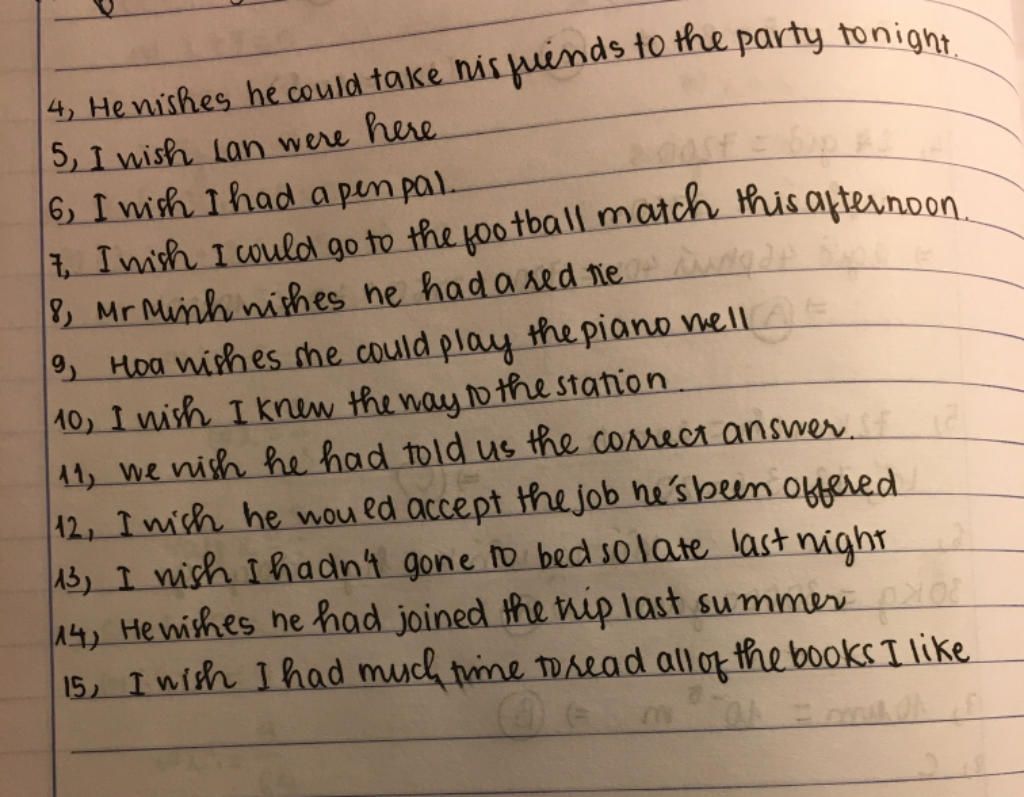 4, He wishes he could take his friends to the party tonight.
5, I wish Lan were here
6, I wish I had a pen pal.
7, I wish I could go to the football match this afternoon.
8, Mr Minh wishes he had a red tie
9, Hoa wishes she could play the piano well
10, I wish I knew the way to the station.
11, we wish he had told us the correct answer.
12, I wish he would accept the job he's been offered
13, I wish I hadn't gone to bed so late last night
14, He wishes he had joined the trip last summer
15, I wish I had much time to read all of the books I like